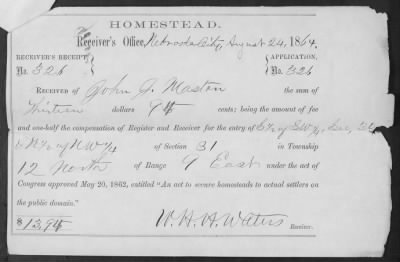 HOMESTEAD.
Receiver's Office, Nebraska City, August 24, 1864.
RECEIVER'S RECEIPT,
No. 326
APPLICATION,
No. 326
RECEIVED of John J. Maston the sum of
Thirteen dollars 94 cents; being the amount of fee
and one-half the compensation of Register and Receiver for the entry of of SW¼, Sec,
& of NW¼ of Section 31 in Township
12 North of Range 9 East under the act of
Congress approved May 20, 1862, entitled "An act to secure homesteads to actual settlers on
the public domain."
$13,94
W. H. H. Waters
Receiver.